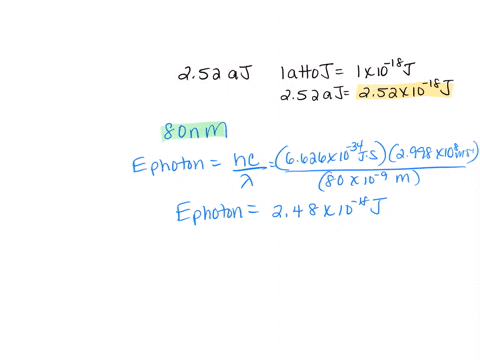 2.52 aJ 1 atto J = 1 x 10⁻¹⁸ J
2.52 aJ = 2.52 x 10⁻¹⁸ J
80nm
Ephoton = hc/λ = (6.626 x 10⁻³⁴ J·s)(2.998 x 10⁸ ms⁻¹)/(80 x 10⁻⁹ m)
Ephoton = 2.48 x 10⁻¹⁸ J